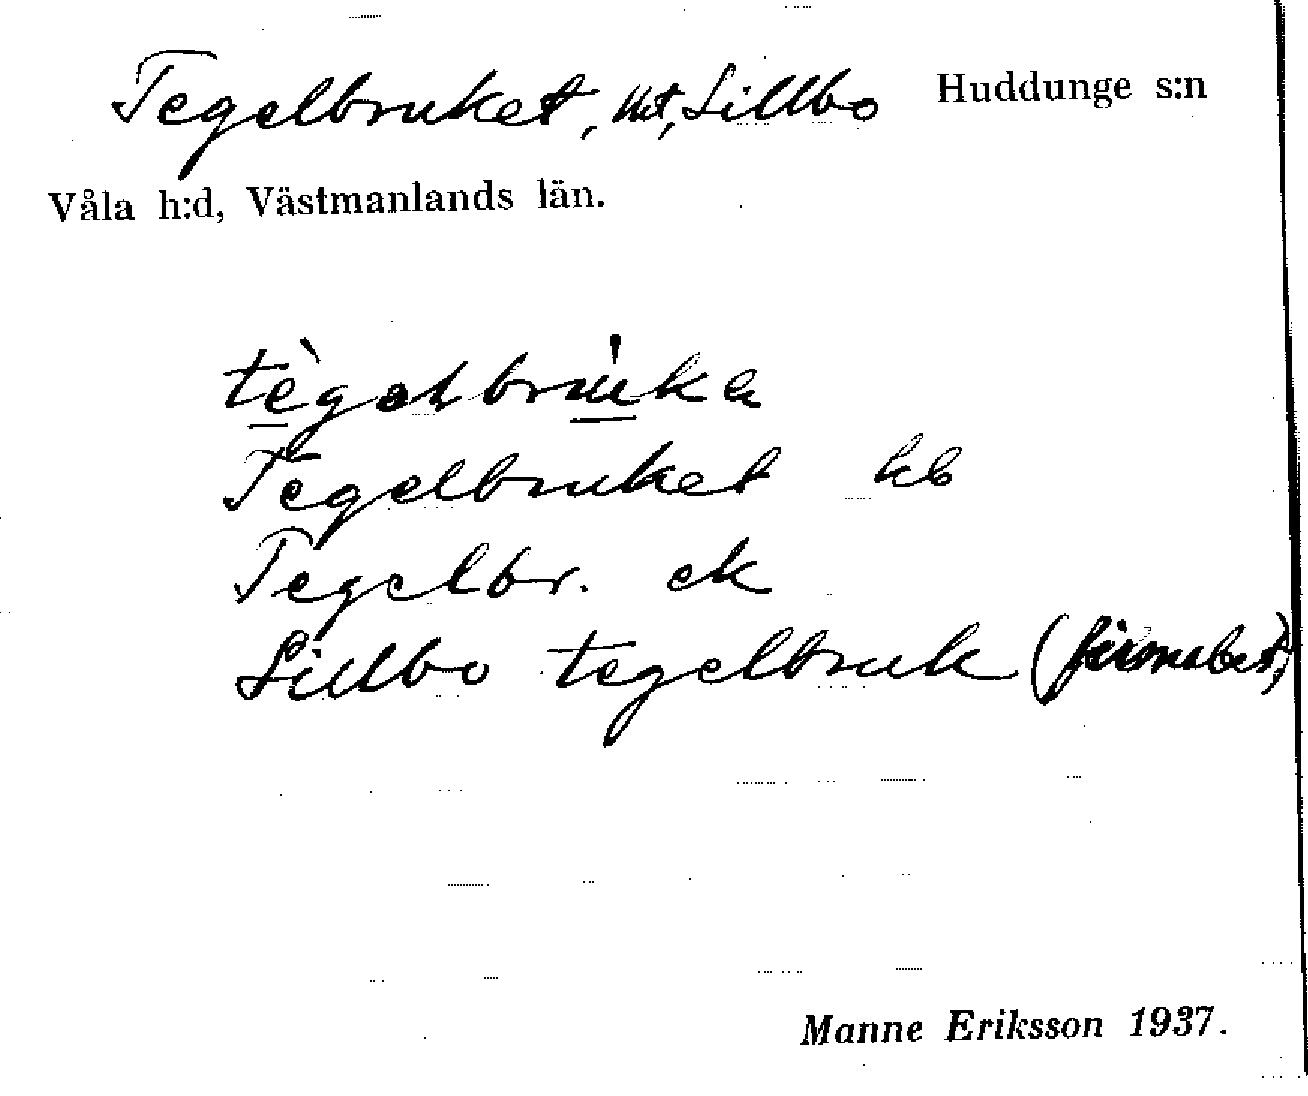 Tegelbruket, ht, Lillbo Huddunge s:n
Våla h:d, Västmanlands län.
tègəlbrúka
Tegelbruket kb
Tegelbr. ek
Lillbo tegelbruk (firmabet.)
Manne Eriksson 1937.